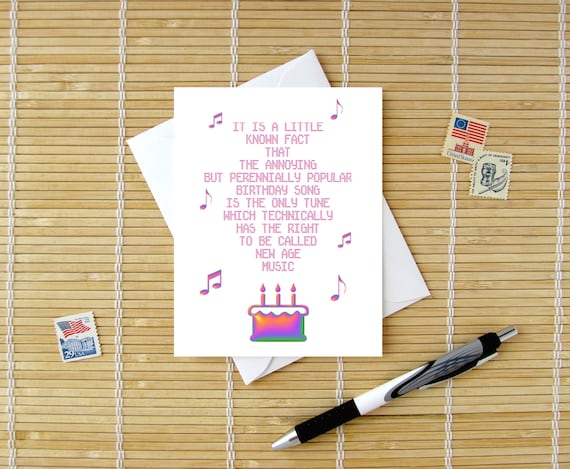 IT IS A LITTLE
KNOWN FACT
THAT
THE ANNOYING
BUT PERENNIALLY POPULAR
BIRTHDAY SONG
IS THE ONLY TUNE
WHICH TECHNICALLY
HAS THE RIGHT
TO BE CALLED
NEW AGE
MUSIC
29 USA